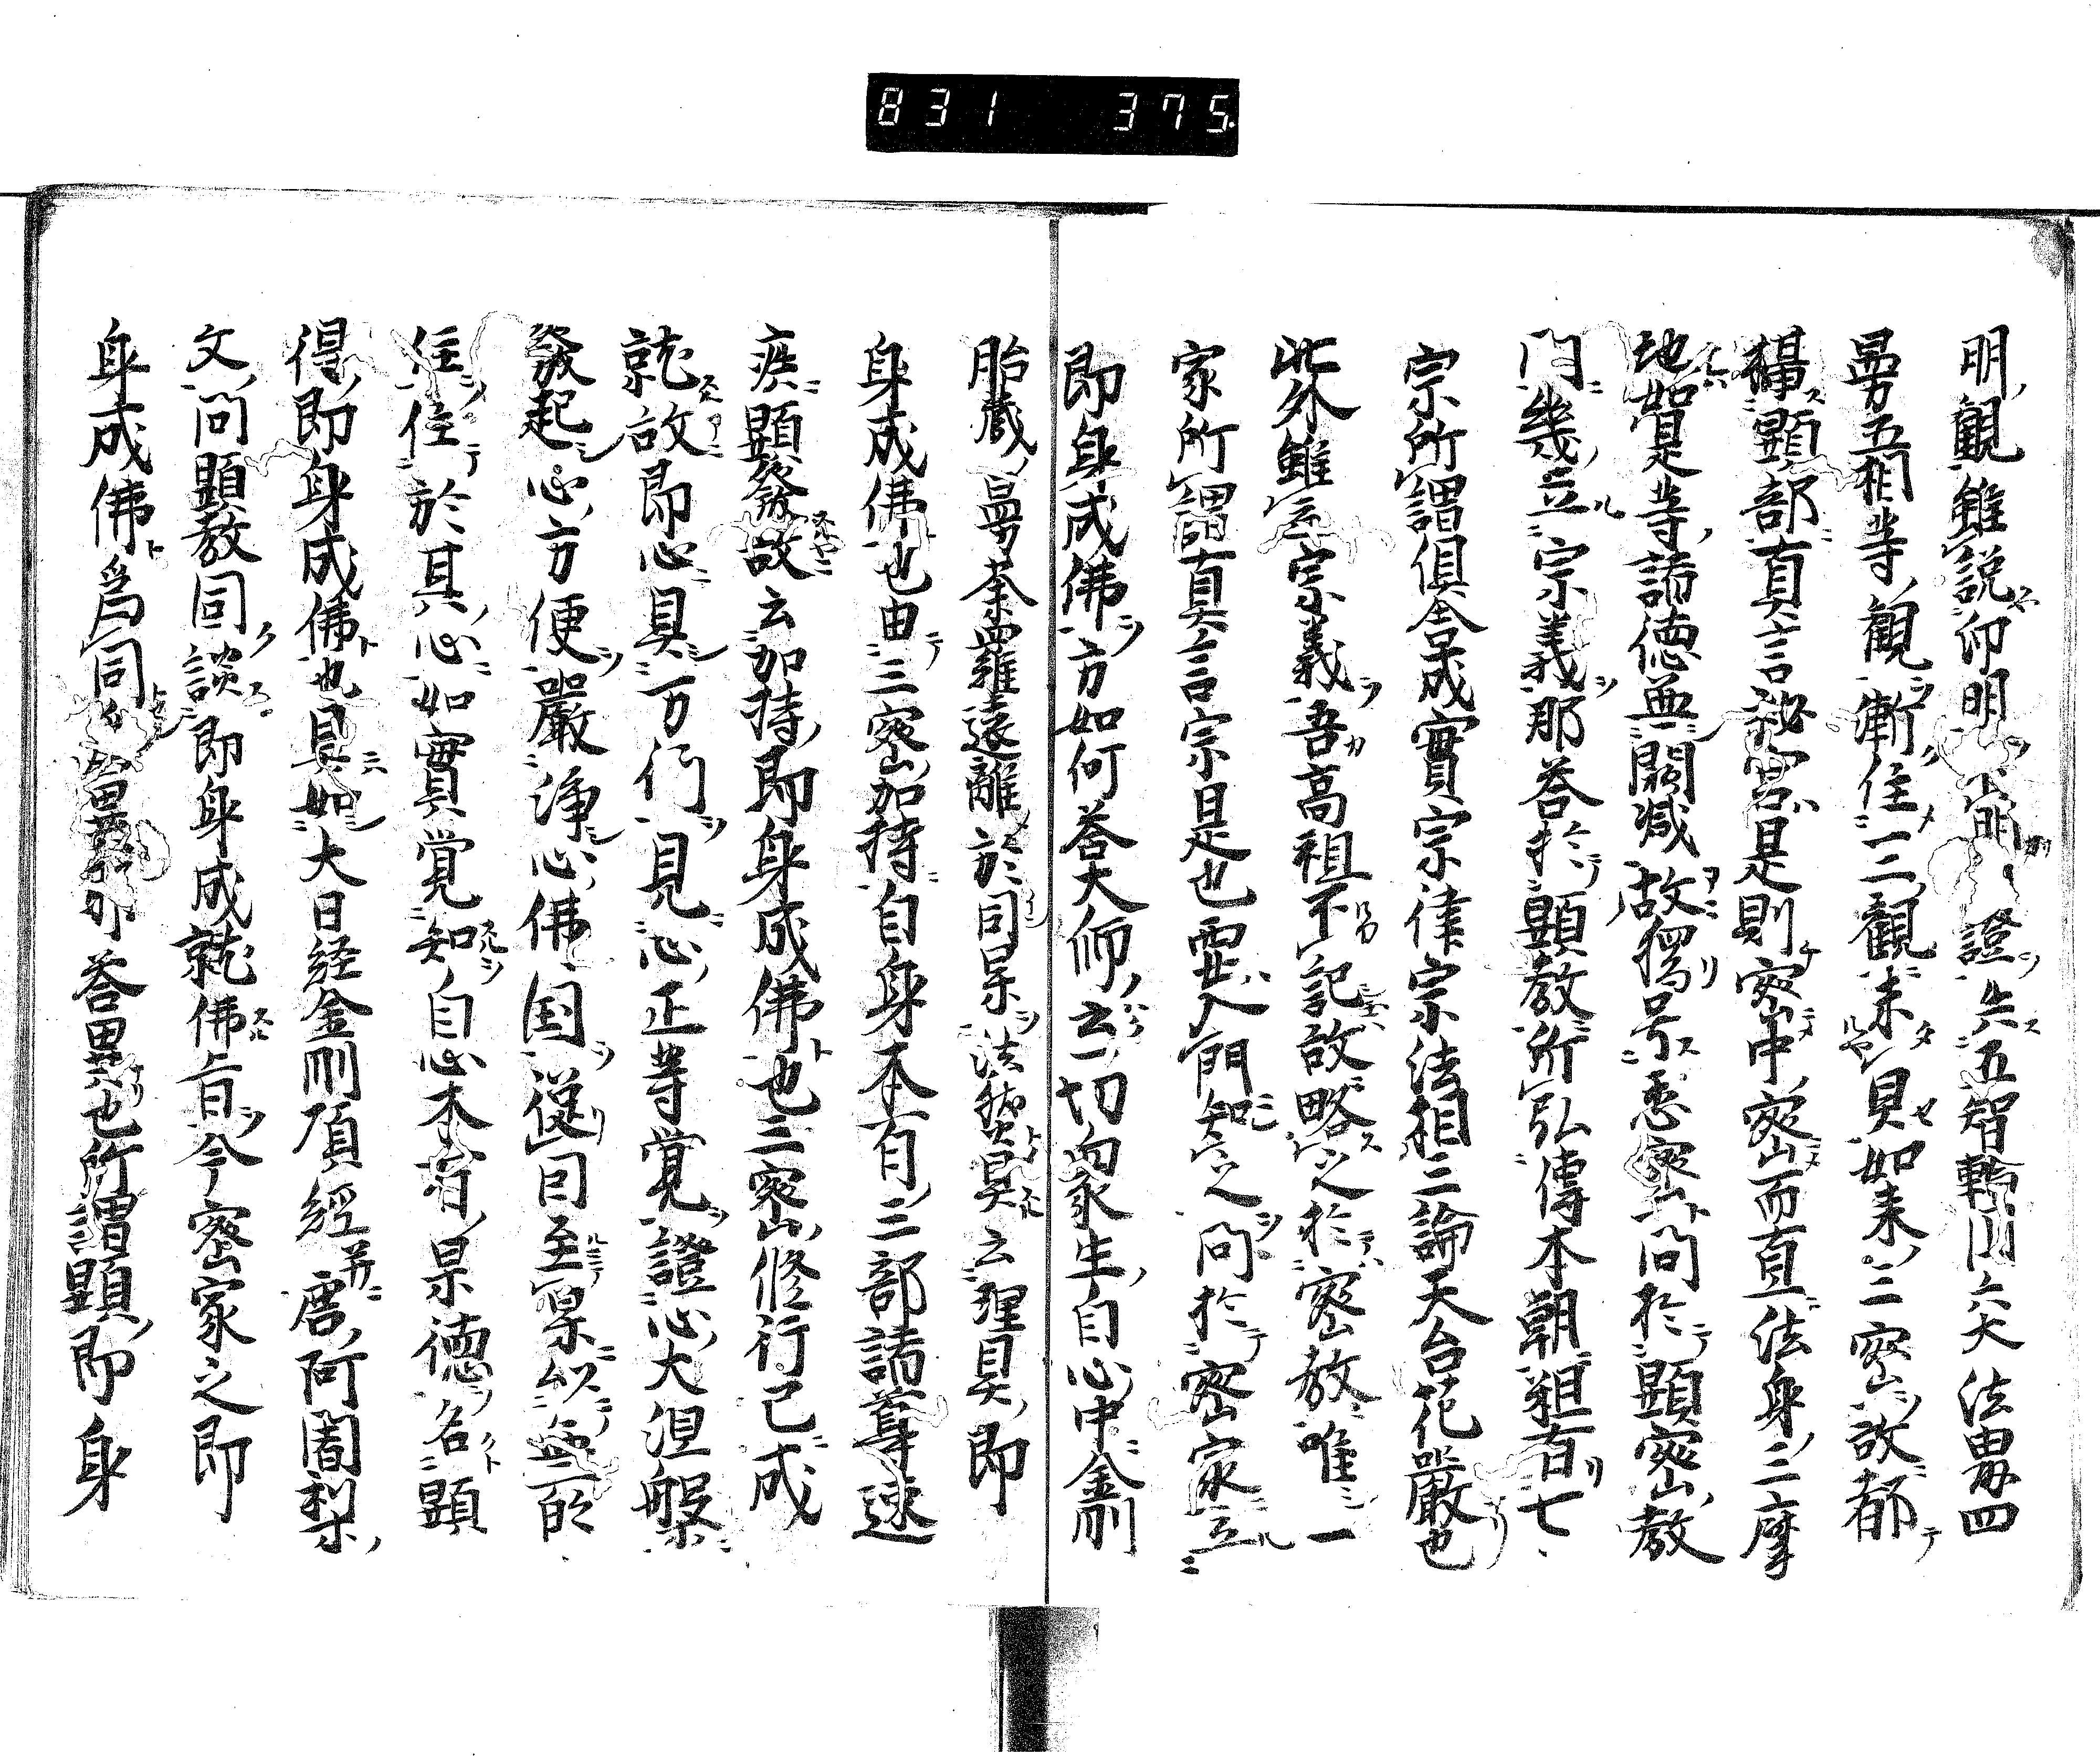 831 375
明觀雖説仰明不明證六五智輪川六大法界四
曼五相等觀漸住一二觀未見如来三密故都
獨顯部真言秘宮是則密中密而直法身三摩
地如是等諸徳無闕減故獨号悉密問於顯密教
門幾立宗義那荅於顯教所弘傳本朝粗有七
宗所謂倶舎成實宗律宗法相三論天台花嚴也
此外雖立宗義吾高祖不記故略之於密教唯一
家所謂真言宗是也要入門知之問於密家立
即身成佛方如何荅大師云一切衆生自心中金剛
胎蔵曼荼羅遠離於同果法然具云理具即
身成佛也由三密加持自身本有三部諸尊速
疾顯發故云加持即身成佛也三密修行已成
就故即心具万行見心正等覚證心大涅槃
發起心方便嚴浄心佛国從因至果以無所
住住於其心如實覚知自心本有果徳名顯
得即身成佛也具如大日経金剛頂經并唐阿闍梨
文問顯教同談即身成就佛旨今密家之即
身成佛為同為異那荅異也所謂顯即身